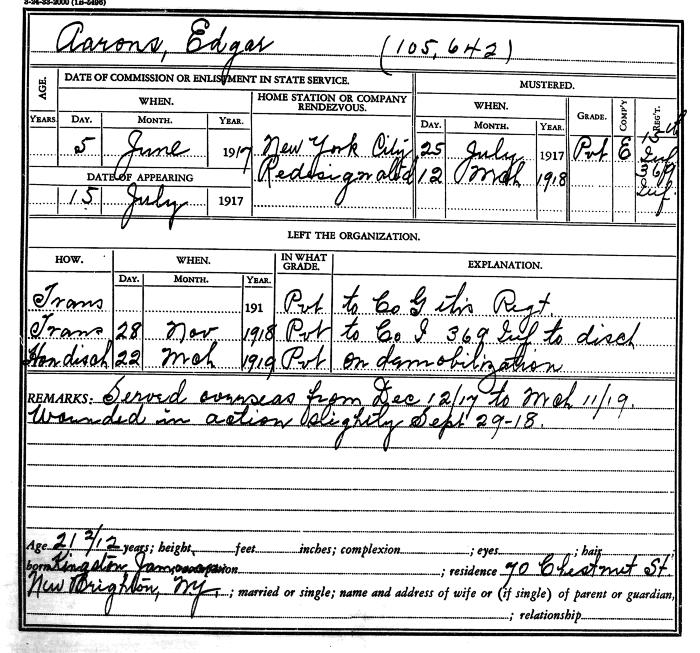 3-24-33-2000 (1B-5496)
Aarons, Edgar (105,642)
AGE. DATE OF COMMISSION OR ENLISTMENT IN STATE SERVICE. MUSTERED.
WHEN. HOME STATION OR COMPANY RENDEZVOUS. WHEN. GRADE. COMP'Y REG'T.
YEARS. DAY. MONTH. YEAR. DAY. MONTH. YEAR.
5 June 1917 New York City 25 July 1917 Pvt E 15th Inf
DATE OF APPEARING Redesignated 12 Mch 1918 369 Inf.
15 July 1917
LEFT THE ORGANIZATION.
HOW. WHEN. IN WHAT GRADE. EXPLANATION.
DAY. MONTH. YEAR.
Trans 191 Pvt to Co G this Regt.
Trans 28 Nov 1918 Pvt to Co I 369 Inf to disch
Hon disch 22 Mch 1919 Pvt on demobilization
REMARKS: Served overseas from Dec 12/17 to Mch 11/19.
Wounded in action slightly Sept 29-18.
Age 21 2/12 years; height, feet inches; complexion ; eyes ; hair
born Kingston Jam ; residence 70 Chestnut St
New Brighton, NY. ; married or single; name and address of wife or (if single) of parent or guardian,
; relationship